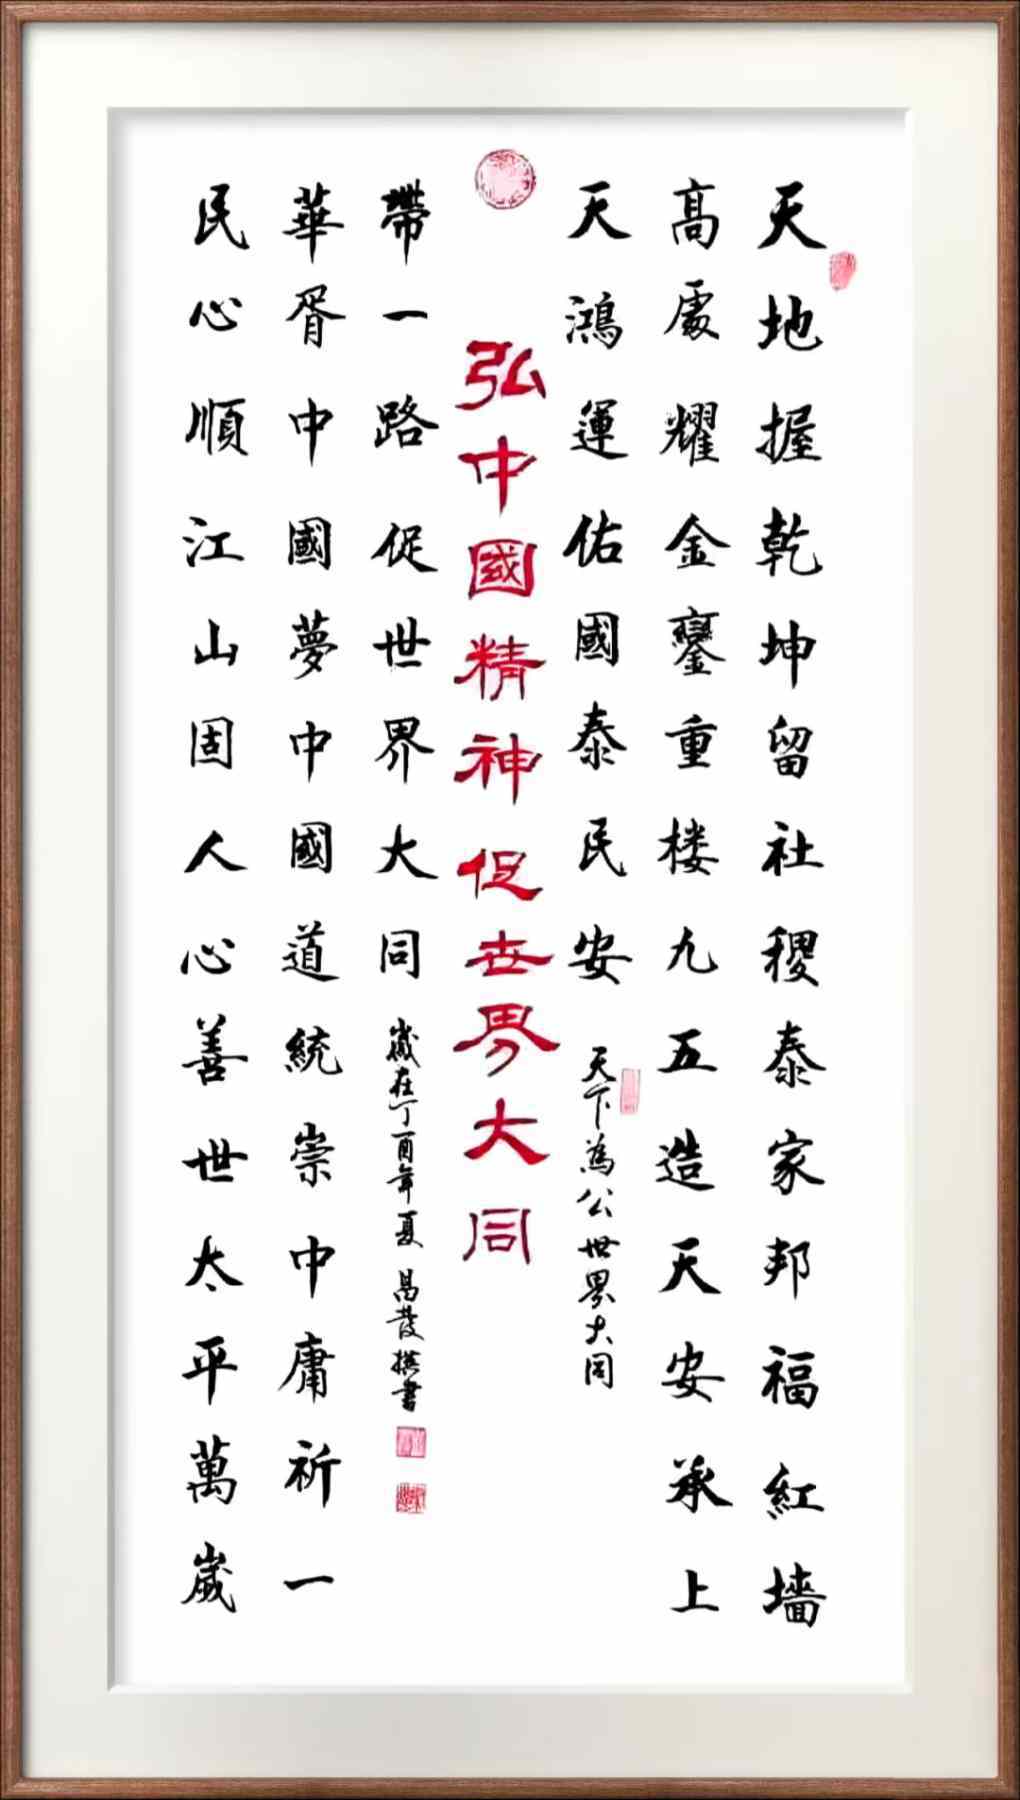 天地握乾坤留社稷泰家邦福紅墻
髙處耀金鑾重楼九五造天安承上
天鴻運佑國泰民安
天下為公世界大同
弘中國精神促世界大同
民心順江山固人心善世太平萬歲
華胥中國夢中國道統崇中庸祈一
帶一路促世界大同
歲在丁酉年夏 昌發撰書